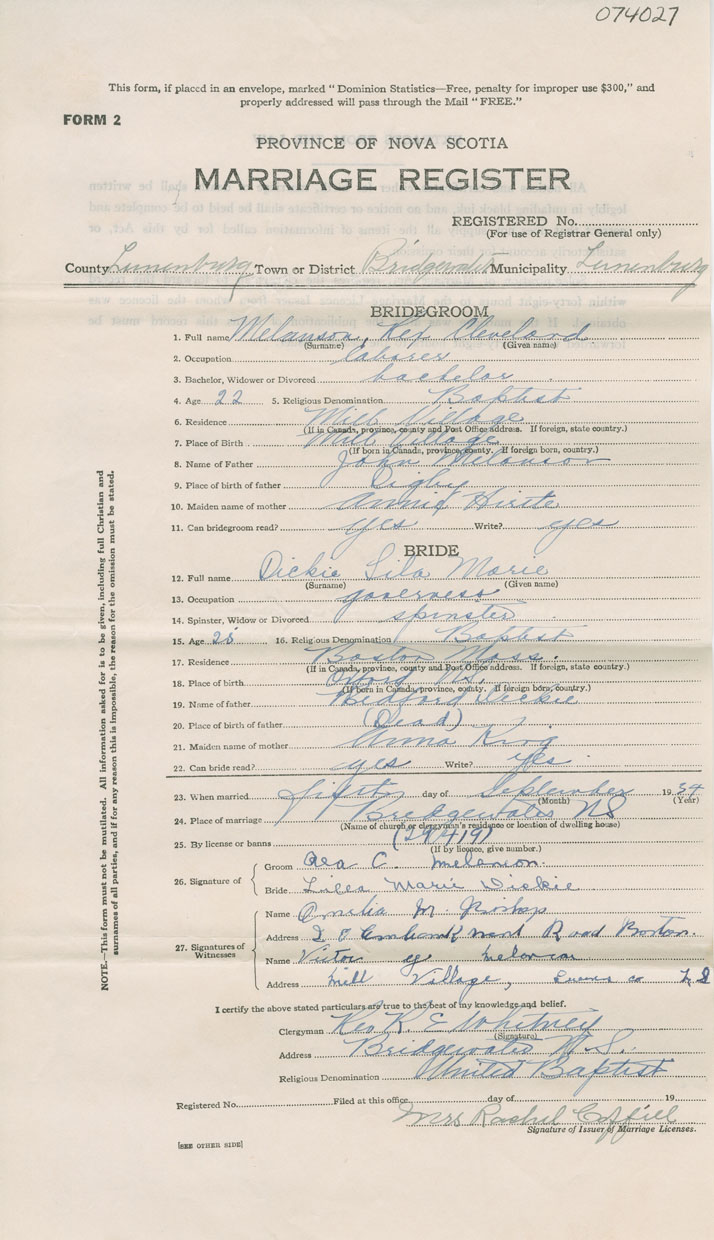 074027
This form, if placed in an envelope, marked "Dominion Statistics—Free, penalty for improper use $300," and
properly addressed will pass through the Mail "FREE."
FORM 2
PROVINCE OF NOVA SCOTIA
MARRIAGE REGISTER
REGISTERED No.
(For use of Registrar General only)
County Lunenburg Town or District Bridgewater Municipality Lunenburg
BRIDEGROOM
1. Full name Melanson, Cleveland
(Surname) (Given name)
2. Occupation laborer
3. Bachelor, Widower or Divorced bachelor
4. Age 22 5. Religious Denomination Baptist
6. Residence Mill Village
(If in Canada, province, county and Post Office address. If foreign, state country.)
7. Place of Birth Mill Village
(If born in Canada, province, county. If foreign born, country.)
8. Name of Father John Melanson
9. Place of birth of father Digby
10. Maiden name of mother Annie Hirtle
11. Can bridegroom read? yes Write? yes
BRIDE
12. Full name Dickie Lila Marie
(Surname) (Given name)
13. Occupation governess
14. Spinster, Widow or Divorced spinster
15. Age 28 16. Religious Denomination Baptist
17. Residence Boston Mass.
(If in Canada, province, county and Post Office address. If foreign, state country.)
18. Place of birth Oxford NS.
(If born in Canada, province, county. If foreign born, country.)
19. Name of father Bedford Dickie
20. Place of birth of father (Dead)
21. Maiden name of mother Anna King
22. Can bride read? yes Write? yes
23. When married first day of September 1934
(Month) (Year)
24. Place of marriage Bridgewater NS
(Name of church or clergyman's residence or location of dwelling house)
25. By license or banns
(If by licence, give number.)
26. Signature of
Groom C. Melanson
Bride Marie Dickie
27. Signatures of Witnesses
Name M.
Address Road Boston.
Name Victor Melanson
Address Mill Village, co N S
I certify the above stated particulars are true to the best of my knowledge and belief.
Clergyman Rev K. E Whitney
(Signature)
Address Bridgewater N.S.
Religious Denomination United Baptist
Registered No. Filed at this office day of 19
Mrs Rachel
Signature of Issuer of Marriage Licenses.
[SEE OTHER SIDE]
NOTE.—This form must not be mutilated. All information asked for is to be given, including full Christian and
surnames of all parties, and if for any reason this is impossible, the reason for the omission must be stated.